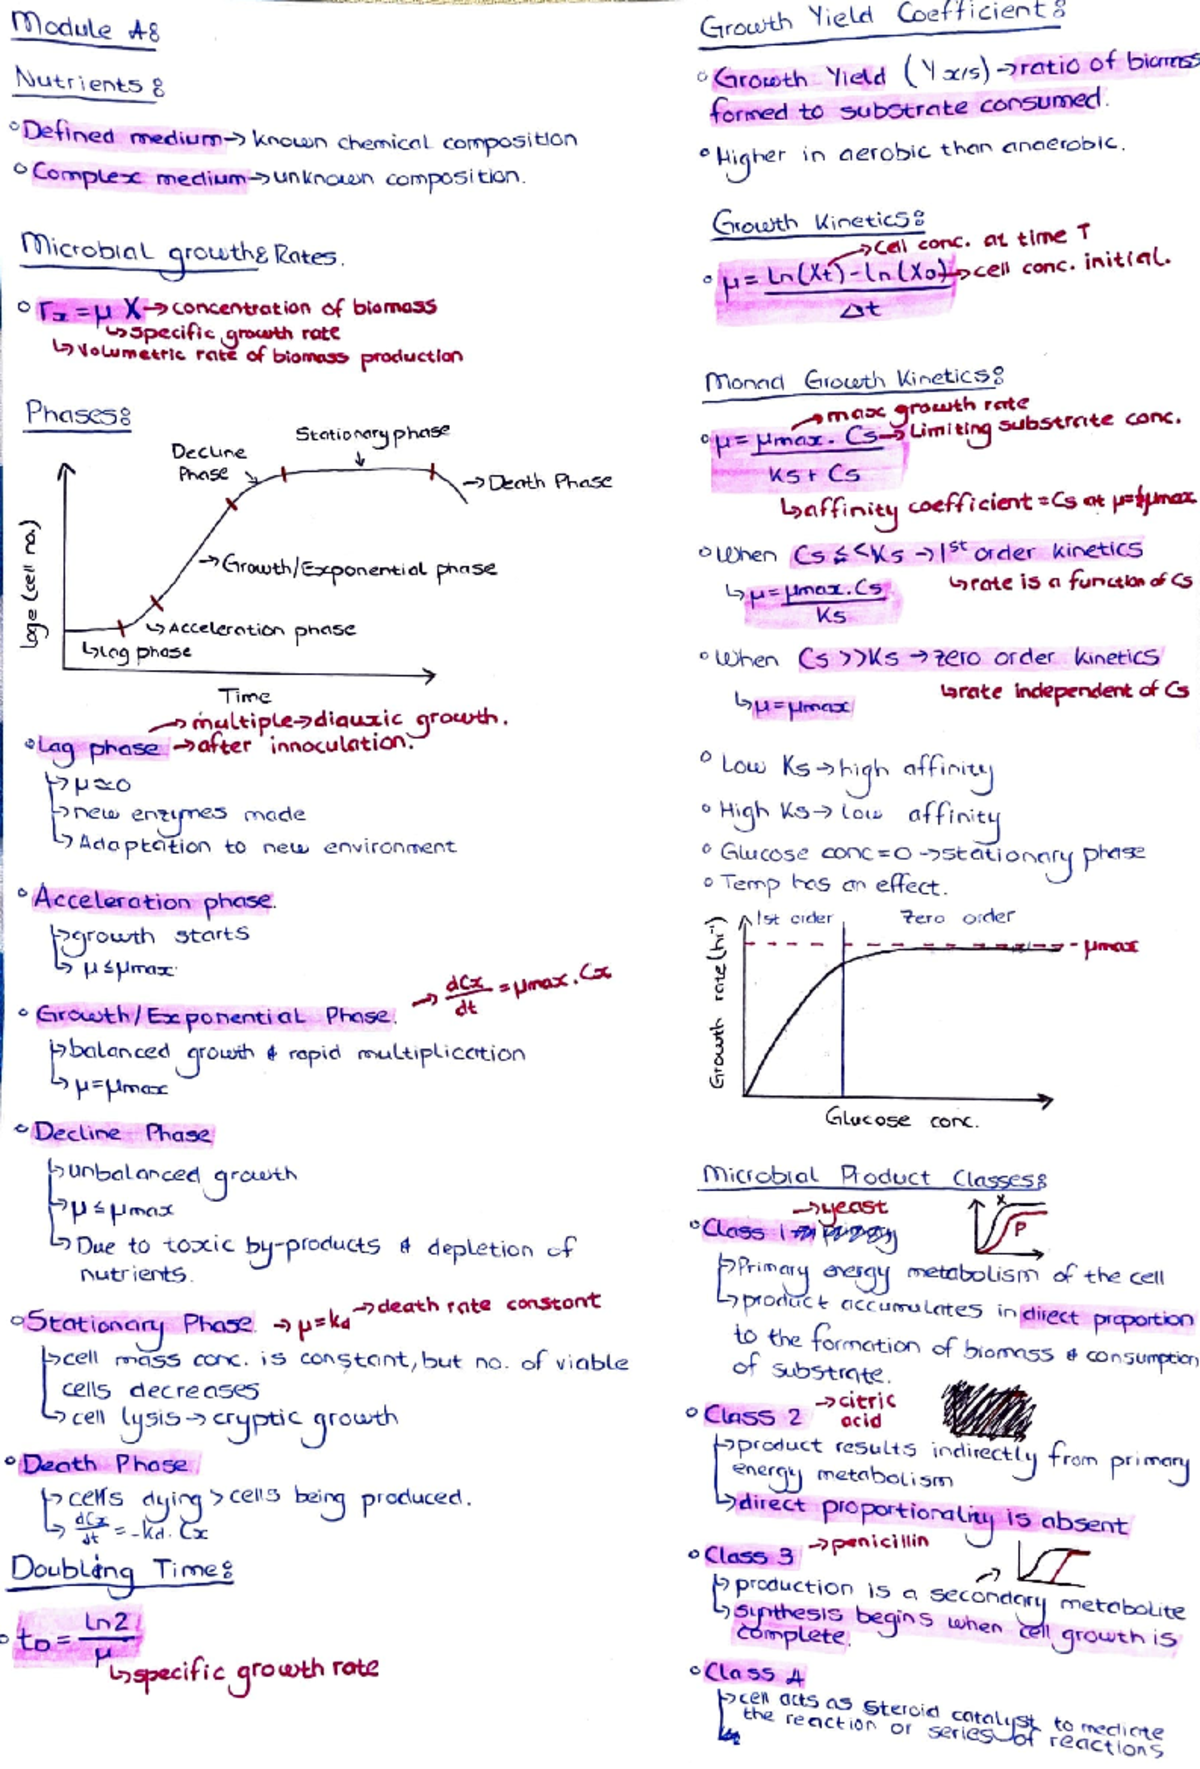 Module A:
Nutrients:
Defined medium → known chemical composition
Complex medium → unknown composition.
Microbial growth & Rates.
rx = μ X → concentration of biomass
↳ specific growth rate
↳ volumetric rate of biomass production
Phases:
Stationary phase
Decline
Phase
→ Death Phase
→ Growth/Exponential phase
↳ Acceleration phase
↳ Lag phase
Loge (cell no.)
Time
→ multiple → diauxic growth.
Lag phase → after innoculation.
↳ μ≈0
↳ new enzymes made
↳ Adaptation to new environment
Acceleration phase.
↳ growth starts
↳ μ ≤ μmax
→ dCx/dt = μmax . Cx
Growth/Exponential Phase.
↳ balanced growth & rapid multiplication
↳ μ = μmax
Decline Phase
↳ unbalanced growth
↳ μ ≤ μmax
↳ Due to toxic by-products & depletion of
nutrients.
Stationary Phase → μ = kd → death rate constant
↳ cell mass conc. is constant, but no. of viable
cells decreases
↳ cell lysis → cryptic growth
Death Phase
↳ cells dying > cells being produced.
↳ dCx/dt = -kd. Cx
Doubling Time:
tD = Ln2/μ
↳ specific growth rate
Growth Yield Coefficient:
Growth Yield (Y x/s) → ratio of biomass
formed to substrate consumed.
Higher in aerobic than anaerobic.
Growth Kinetics:
→ Cell conc. at time T
μ = Ln(Xt) - Ln(X0) → cell conc. initial.
Δt
Monad Growth Kinetics:
→ max growth rate
μ = μmax . Cs → Limiting substrate conc.
Ks + Cs
↳ affinity coefficient = Cs at μ=½μmax
When Cs ≤<Ks → 1st order kinetics
↳ μ = μmax . Cs ↳ rate is a function of Cs
Ks
When Cs >> Ks → zero order kinetics
↳ μ = μmax ↳ rate independent of Cs
Low Ks → high affinity
High Ks → low affinity
Glucose conc = 0 → stationary phase
Temp has an effect.
1st order
Zero order
- μmax
Growth rate (hr⁻¹)
Glucose conc.
Microbial Product Classes:
→ yeast
Class 1
X
P
↳ Primary energy metabolism of the cell
↳ product accumulates in direct proportion
to the formation of biomass & consumption
of substrate.
Class 2 → citric
acid
↳ product results indirectly from primary
energy metabolism
↳ direct proportionality is absent
Class 3 → penicillin
↳ production is a secondary metabolite
↳ synthesis begins when cell growth is
complete.
Class 4
↳ cell acts as steroid catalyst to mediate
the reaction or series of reactions